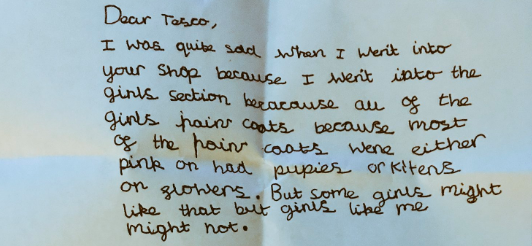 Dear Tesco,
I was quite sad when I went into
your shop because I went into the
girls section beracause all of the
girls rain coats because most
of the rain coats were either
pink or had pupies or kitens
or flowers. But some girls might
like that but girls like me
might not.